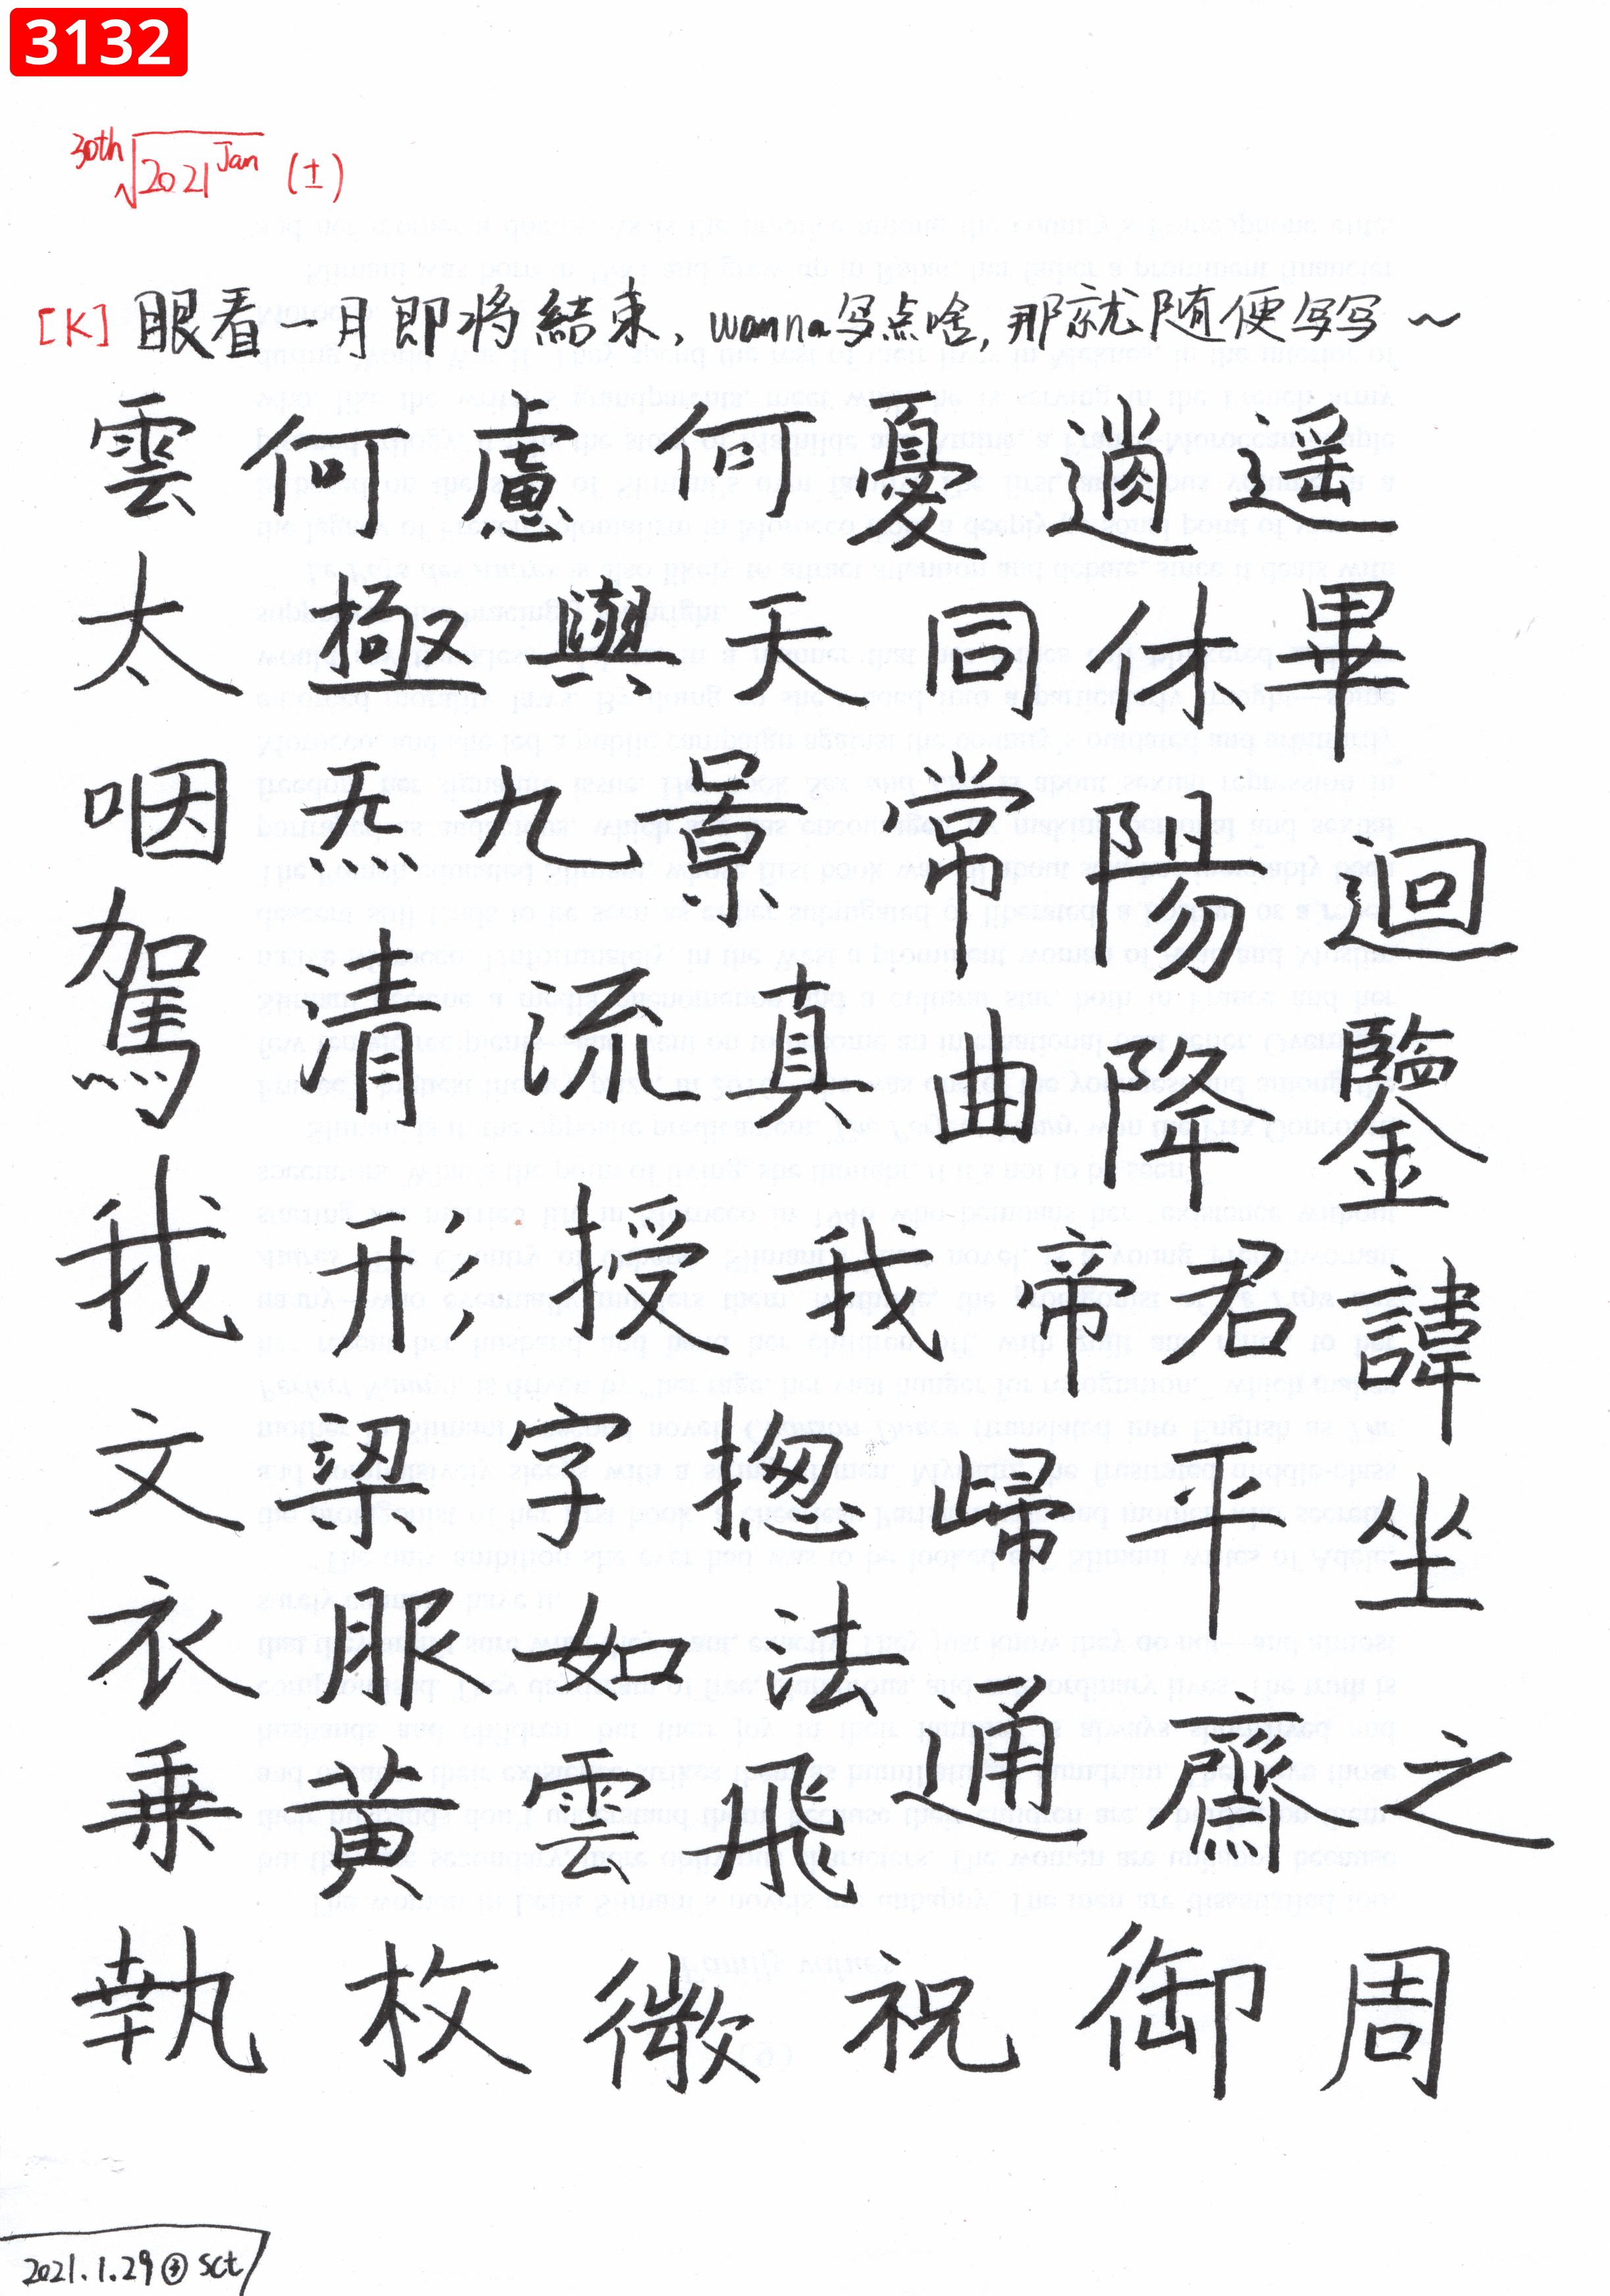 3132
30th√2021^Jan (±)
[K] 眼看一月即将結束, wanna写点啥, 那就随便写写~
雲何慮何憂逍遥
太極與天同休畢
咽炁九景常陽迴
駕清流真曲降鑒
我形授我帝君諱
文梁字揔歸平坐
衣服如法通齋之
乗黄雲飛
執枚微祝御周
2021.1.29④sct